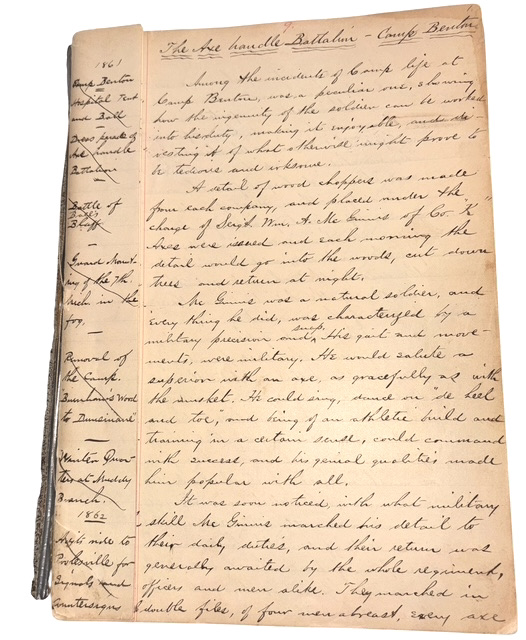 The Axe handle Battalion - Camp Benton
1861
Camp Benton
Hospital Tent
and Ball
Dress parade of
Axe handle
Battalion
Battle of
Ball's
Bluff
Guard Mount-
ing of the 7th
Mich in the
fog.
Removal of
the Camp.
"Burnham's Wood
to Dunsinane"
Winter Quar-
ters at Muddy
Branch.
1862
Night ride to
Poolesville for
and
Countersigns
Among the incidents of Camp life at
Camp Benton, was a peculiar one, showing
how the ingenuity of the soldier can be worked
into his duty, making it enjoyable, and di-
vesting it of what otherwise might prove to
be tedious and irksome.
A detail of wood choppers was made
from each company, and placed under the
charge of Sergt. Wm. A. Mc Ginnis of Co. "K"
Axes were issued and each morning the
detail would go into the woods, cut down
trees and return at night.
Mc Ginnis was a natural soldier, and
every thing he did, was characterized by a
military precision and snap. His gait and move-
ments, were military. He would salute a
superior with an axe, as gracefully as with
the musket. He could sing, dance on "de heel
and toe", and being of an athletic build and
training in a certain sense, could command
with success, and his genial qualities made
him popular with all.
It was soon noticed, with what military
skill Mc Ginnis marched his detail to
their daily duties, and their return was
generally awaited by the whole regiment,
officers and men alike. They marched in
double files, of four men abreast, every axe